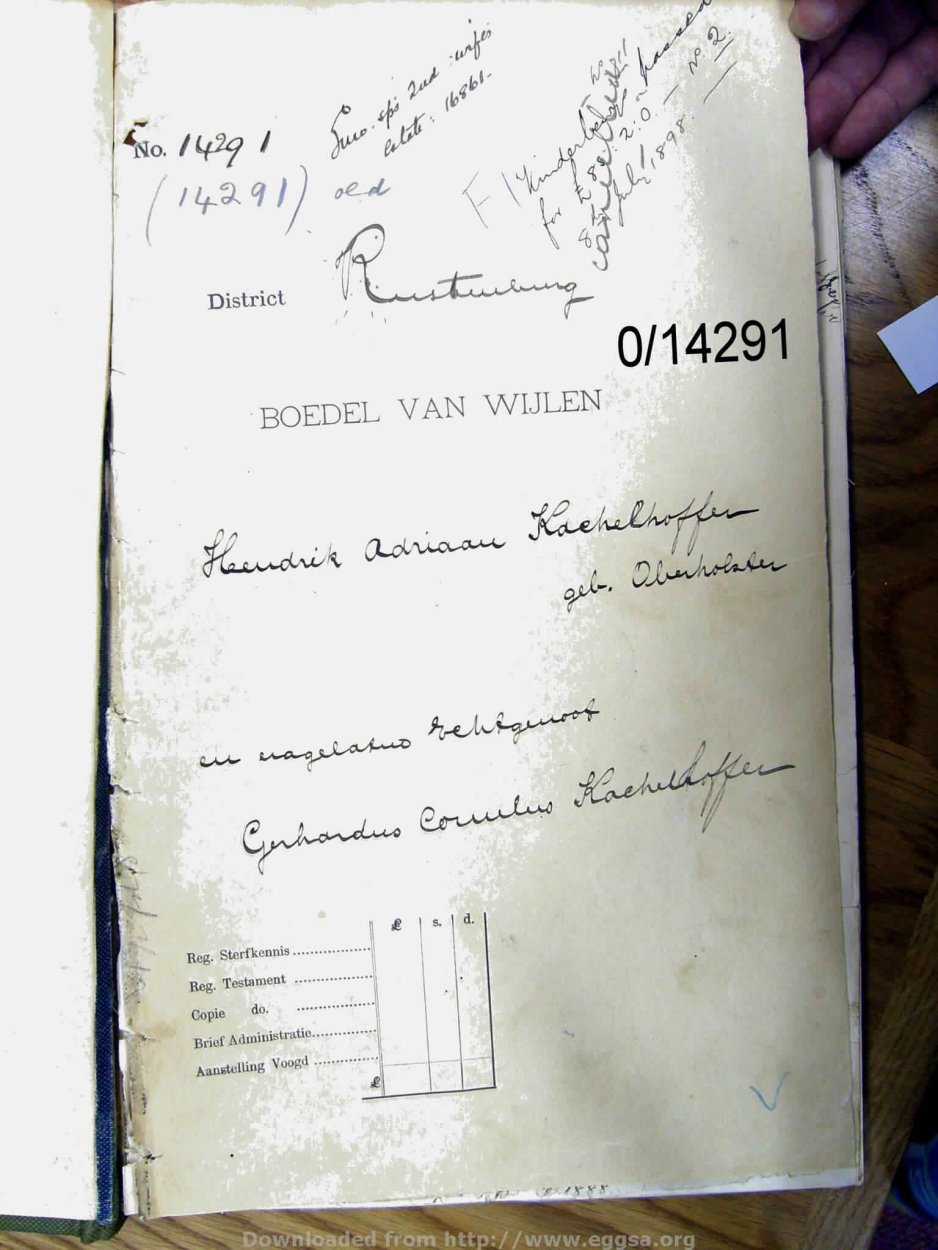 No. 14291
(14291) old
Surv. sps 2nd wifes
estate: 16861.
F / Kinderbewijs
for £
cancelled
July 1898.
passed
No 2.
District Rustenburg
0/14291
BOEDEL VAN WIJLEN
Hendrik Adriaan Kachelhoffer
geb. Oberholster
en nagelatene Echtgenoot
Gerhardus Cornelus Kachelhoffer
£ s. d.
Reg. Sterfkennis
Reg. Testament
Copie do.
Brief Administratie
Aanstelling Voogd
£
Downloaded from http://www.eggsa.org